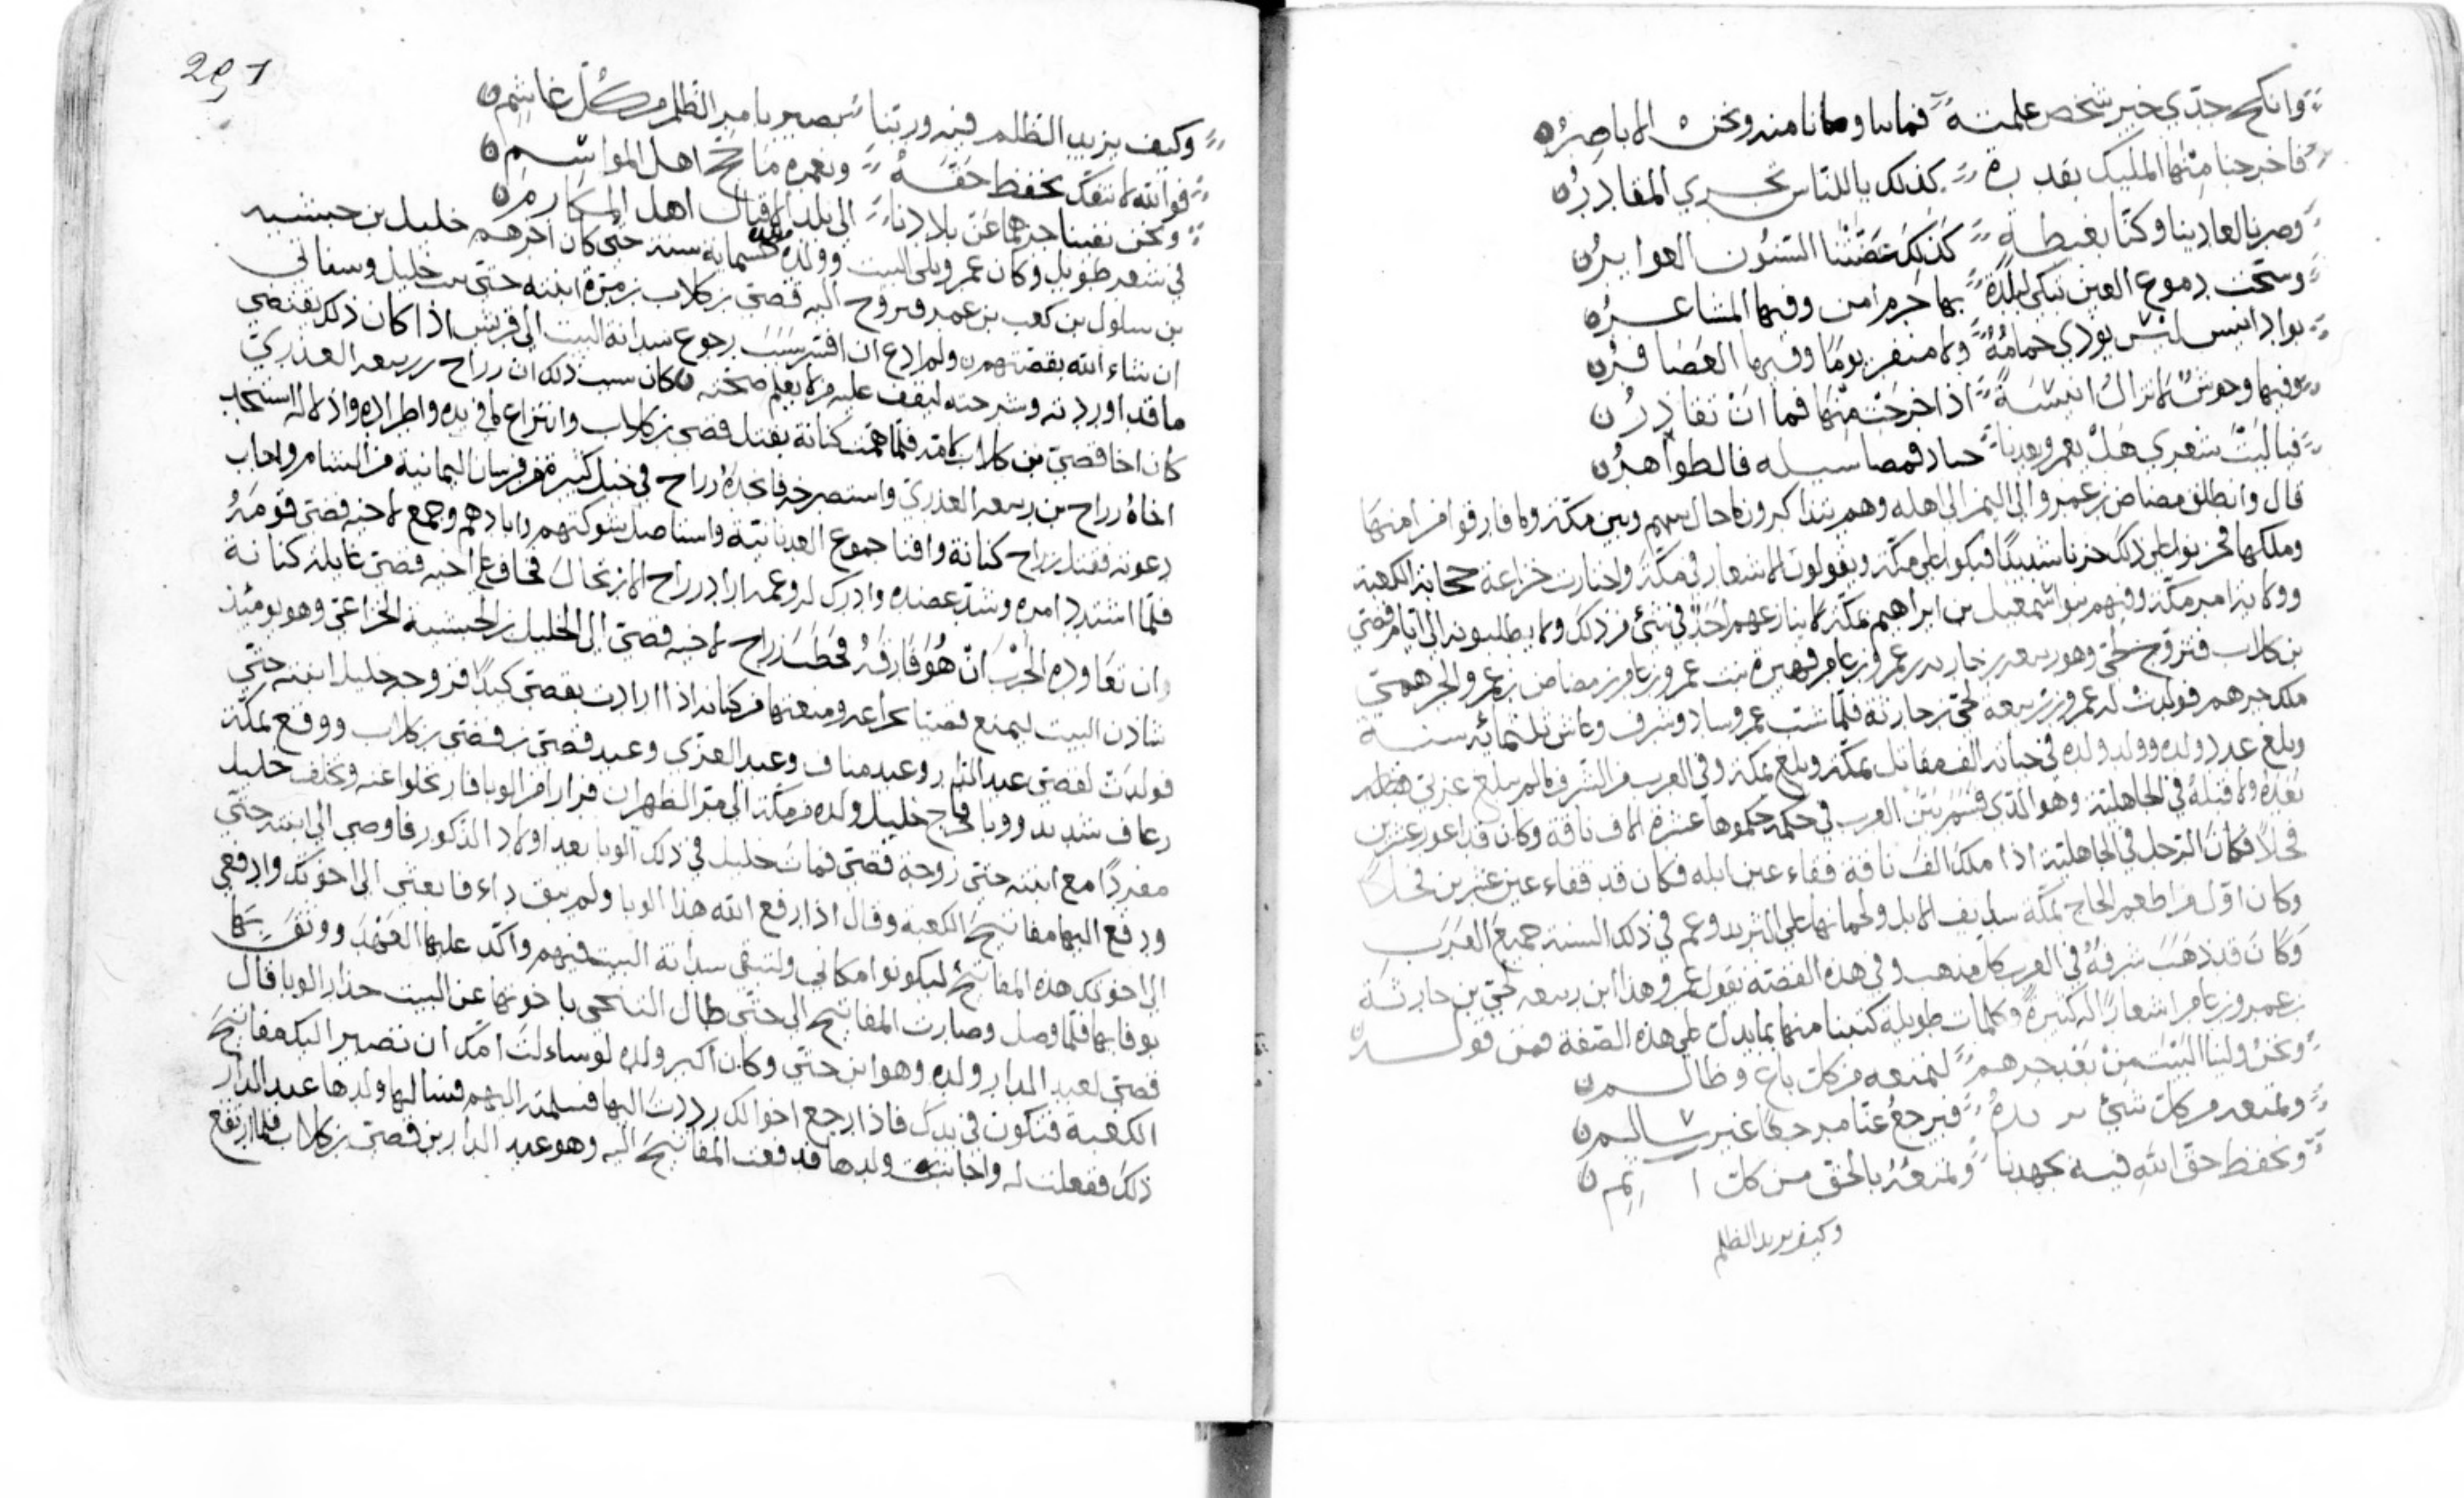 وانكح جدي خير شخص علمته فمابنا ومانا منه ونحن الاباصرن
فاخرجنا منها المليك بقدرة كذلك باللناس تجري المقادرن
وصرنا احاديثا وكنا بغبطة كذلك عضتنا السنون الغوابرن
وسحت دموع العين تبكي لبلدة بها حرم امن وفيها المشاعرن
بواد انيس ليس يوذي حمامه ولا منفر يوما وفيها العصافرن
وفيها وحوش لا تزال انيسة اذا خرجت منها فما ان تغادرن
فيا ليت شعري هل يعمر بعدنا جياد فمضا سيله فالظواهرن
قال وانطلق مضاض بن عمرو الى اليمن الى اهله وهم يتذاكرون ما حال بينهم وبين مكة وما فارقوا من امنها
وملكها فحزنوا على ذلك حزنا شديدا فبكوا على مكة ويقولون الاشعار في مكة واحتازت خزاعة حجابة الكعبة
وولاية امر مكة وفيهم بنوا اسمعيل بن ابراهيم بمكة لا ينازعهم احد في شئ من ذلك ولا يطلبونه الى ايام قصي
بن كلاب فتزوج لحي وهو ربيعه بن حارثه بن عمرو بن عامر فهيرة بنت عمرو بن عامر بن مضاض بن عمرو الجرهمي
ملك جرهم فولدت له عمرو بن ربيعه لحي بن حارثة فلما شب عمرو ساد وشرف وعاش ثلثمائة سنة
وبلغ عدد ولده وولد ولده في حياته الف مقاتل بمكة وبلغ بمكة وفي العرب من الشرف ما لم يبلغ عربي مثله
بعده ولا قبله في الجاهلية وهو الذي قسم بين العرب في حكمة حكموها عشرة الاف ناقة وكان قد اعور عشرين
فحلا فكان الرجل في الجاهلية اذا ملك الف ناقة فقاء عين ابله فكان قد فقاء عين عشرين فحلا
وكان اول من اطعم الحاج بمكة سدايف الابل ولحمانها على الثريد وعم في ذلك السنة جميع العرب
وكان قد ذهب شرفه في العرب كل مذهب وفي هذه القصة يقول عمرو هذا ابن ربيعه لحي بن حارثة
بن عمرو بن عامر اشعارا له كثيرة وكلمات طويلة كتبنا منها بما يدل على هذه الصفة فمن قوله
ونحن ولينا البيت من بعد جرهم لنمنعه من كل باغ وظالمن
ونمنعه من كل شئ يريده فيرجع عنا مرجعا غير سالمن
ونحفظ حق الله فيه بجهدنا ونمنعه بالحق من كل اثمن
وكيف يريد الظلم
291
وكيف يريد الظلم فيه وربنا بصير بامر الظلم من كل غاشمن
فوالله لا ننفك نحفظ حقه ونعمره ما حج اهل المواسمن
ونحن نفينا جرهما عن بلادنا الى بلد الاقيال اهل المكارمن
في شعر طويل وكان عمرو يلي البيت وولده بعده خسمايه سنة حتى كان اخرهم خليل بن حبشيه
بن سلول بن كعب بن عمرو فتزوج اليه قصي بن كلاب بن مرة ابنته حبي بنت خليل وسناتي
ان شاء الله بقصتهم ولم ادع ان افسر سبب رجوع سدانة البيت الى قريش اذا كان ذلك يقتضي
ما قد اوردته وشرحته ليقف عليه من لا يعلم صحته ن كان سبب ذلك ان رزاح بن ربيعه العذري
كان اخا قصي بن كلاب لامه فلما همت كنانة بقتل قصي بن كلاب وانتزاع ما في يده واطراده واذلاله استنجد
اخاه رزاح بن ربيعه العذري واستصرخه فانجده رزاح في خيل كثيرة من فرسان اليمانية من الشام واجاب
دعوته فقتل رزاح كنانة وافنا جموع العدنانية واستاصل شوكتهم وابادهم وجمع لاخيه قصي قومه
فلما اشتد امره وشد عضده وادرك له وعمه اراد رزاح الارتحال فخاف على اخيه قصي غايلة كنانة
وان تعاوده الحرب ان هو فارقه فخطب رزاح لاخيه قصي الى الخليل بن الحبشية الخزاعي وهو يومئذ
سادن البيت ليمنع قصيا بخزاعه ومنعتها من كنانه اذا ارادت بقصي كيدا فزوجه خليل ابنته حبي
فولدت لقصي عبد الدار وعبد مناف وعبد العزى وعبد قصي بن قصي بن كلاب ووقع بمكة
رعاف شديد ووبا فخرج خليل وولده من مكة الى مر الظهران فرارا من الوبا فارتحلوا عنه وتخلف خليل
مفردا مع ابنته حبي زوجة قصي فمات خليل في ذلك الوبا بعد اولاد الذكور فاوصى الى ابنته حبي
ودفع اليها مفاتيح الكعبه وقال اذا رفع الله هذا الوبا ولم يبق داء فابعثي الى اخوتك وادفعي
الى اخوتك هذه المفاتيح ليكونوا مكاني ولتبقى سدانة البيت فيهم واكد عليها العهد ووثق بها
بوفايها فلما وصل وصارت المفاتيح الى حبي طال التنحي باخوتها عن البيت حذار الوبا فقال
قصي لعبد الدار ولده وهو ابن حبي وكان اكبر ولده لو سالت امك ان تصير اليك مفاتيح
الكعبة فتكون في يدك فاذا رجع اخوالك رددت اليها فسلمته اليهم فسالها ولدها عبد الدار
ذلك ففعلت له واجابت ولدها فدفعت المفاتيح اليه وهو عبد الدار بن قصي بن كلاب فلما ارتفع